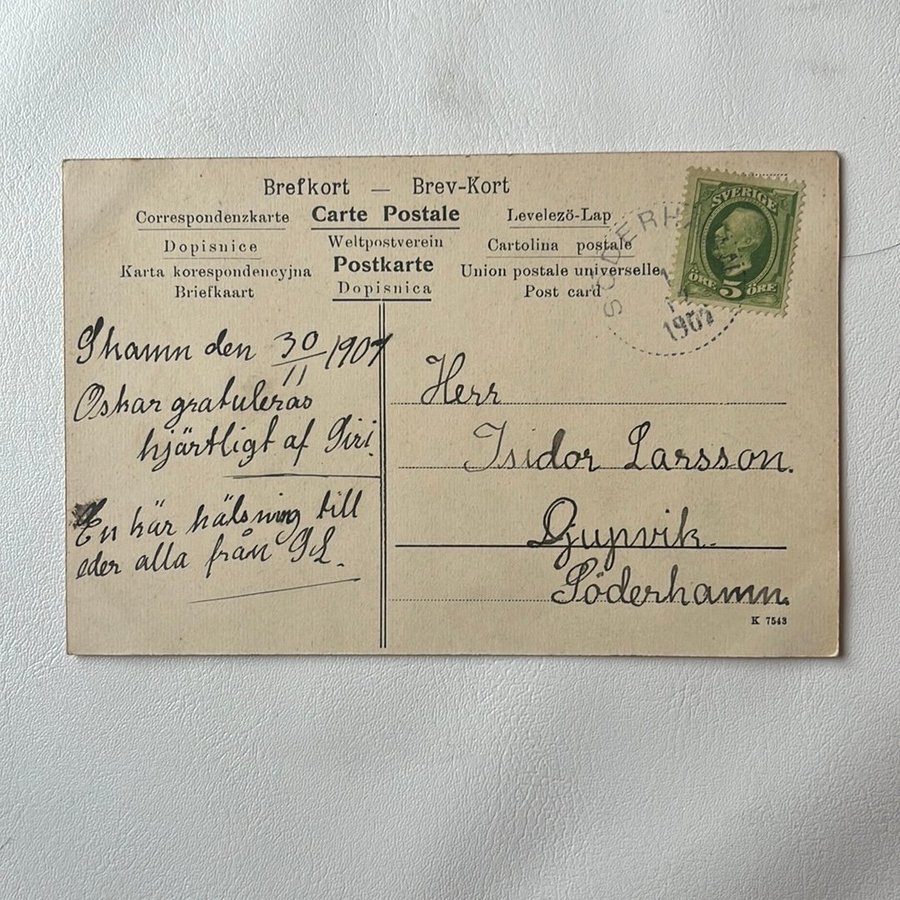 Brefkort — Brev-Kort
Correspondenzkarte Carte Postale Levelező-Lap
Dopisnice Weltpostverein Cartolina postale
Karta korespondencyjna Postkarte Union postale universelle
Briefkaart Dopisnica Post card
SVERIGE
ÖRE 5 ÖRE
SÖDERH
1907
Shamn den 30/11 1907
Oskar gratuleras
hjärtligt af Siri.
En kär hälsning till
eder alla från S L.
Herr
Isidor Larsson.
Djupvik.
Söderhamn.
K 7543